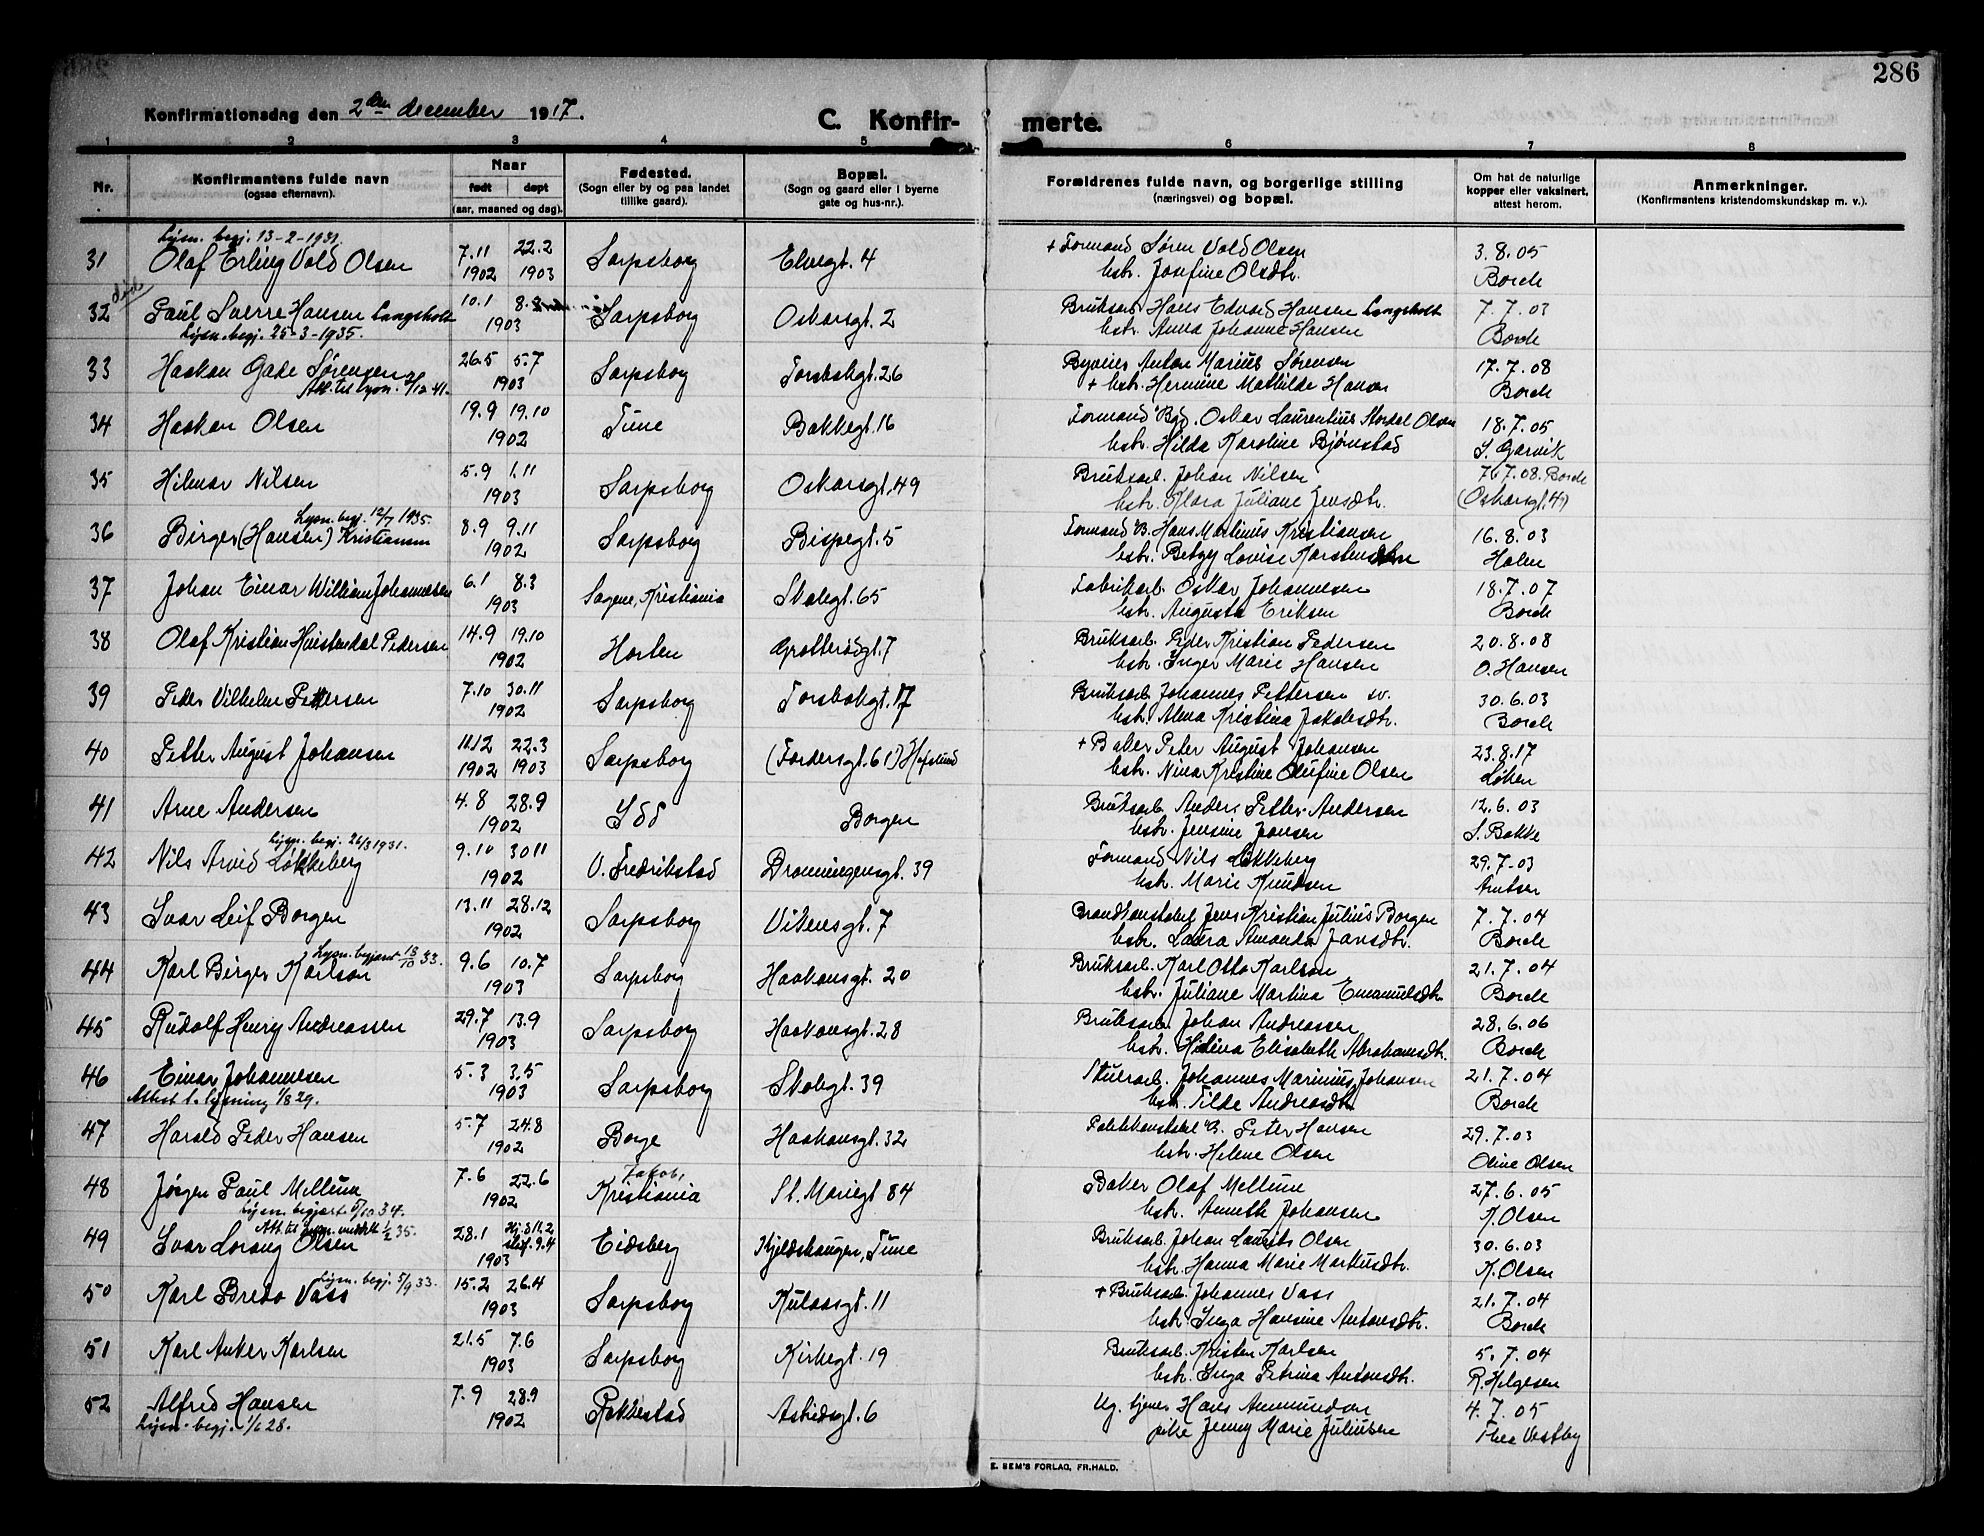 286
Konfirmationsdag den 2den december 1917.
C. Konfir- merte.
1 2 3 4 5 6 7 8
Nr.
Konfirmantens fulde navn
(ogsaa efternavn).
Naar
født døpt
(aar, maaned og dag).
Fødested.
(Sogn eller by og paa landet
tillike gaard).
Bopæl.
(Sogn og gaard eller i byerne
gate og hus-nr.).
Forældrenes fulde navn, og borgerlige stilling
(næringsvei) og bopæl.
Om hat de naturlige
kopper eller vaksinert,
attest herom.
Anmerkninger.
(Konfirmantens kristendomskundskap m. v.).
Lysn. begj. 13-2-1931.
31 Olaf Erling Vold Olsen 7.11 22.2 Sarpsborg Elvegt. 4 + Formand Søren Vold Olsen 3.8.05
1902 1903 hstr. Josefine Olsdtr. Borch
død
32 Paul Sverre Hansen Langsholt 10.1 8.3 Sarpsborg Oskarsgt. 2 Bruksarb. Hans Edvard Hansen Langsholt 7.7.03
Lysn. begj. 25-3-1935. 1903 hstr. Anna Johanne Hansen Borch
33 Haakon Gade Sørensen 26.5 5.7 Sarpsborg Torsbekgt. 26 Byveier Anton Marius Sørensen 17.7.08
Att. til lysn. /12 41. 1903 + hstr. Hermine Mathilde Hansen Borch
34 Haakon Olsen 19.9 19.10 Tune Bakkegt. 16 Formand Bgd. Oskar Laurentius Stordal Olsen 18.7.05
1902 hstr. Hilda Karoline Bjørnstad S. Garvik
35 Hilmar Nilsen 5.9 1.11 Sarpsborg Oskarsgt. 49 Bruksarb. Johan Nilsen 7.08. Borch
1903 hstr. Klara Juliane Jensdtr. (Oskarsgt. 4)
Lysn. begj. 12/7 1935.
36 Birger (Hansen) Kristiansen 8.9 9.11 Sarpsborg Bispegt. 5 Formand B. Hans Martinus Kristiansen 16.8.03
1902 hstr. Betzy Lovise Karstensdtr Holm
37 Johan Einar William Johannesen 6.1 8.3 Sagene, Kristiania Skolegt. 65 Fabrikarb. Oskar Johannesen 18.7.07
1903 hstr. Augusta Eriksen Borch
38 Olaf Kristian Huistendal Pedersen 14.9 19.10 Horten Grotterødgt. 7 Bruksarb. Peder Kristian Pedersen 20.8.08
1902 hstr. Inger Marie Hansen O. Hansen
39 Peder Vilhelm Pettersen 7.10 30.11 Sarpsborg Torsbekgt. 17 Bruksarb. Johannes Pettersen sv. 30.6.03
1902 hstr. Alma Kristina Jakobsdtr. Borch
40 Petter August Johansen 11.12 22.3 Sarpsborg (Fordersgt. 61) Hafslund + Baker Peter August Johansen 23.8.17
1902 1903 hstr. Nina Kristine Olufine Olsen Løken
41 Arne Andersen 4.8 28.9 Idd Borgen Bruksarb. Anders Petter Andersen 12.6.03
1902 hstr. Jensine Jansen S. Bakke
Lysn. begj. 26/3 1931.
42 Nils Arvid Løkkeberg 9.10 30.11 V. Fredrikstad Dronningensgt. 39 Formand Nils Løkkeberg 29.7-03
1902 hstr. Marie Knudsen Amtsen
43 Ivar Leif Borgen 13.11 28.12 Sarpsborg Vikensgt. 7 Brandkonstabel Jens Kristian Julius Borgen 7.7.04
1902 hstr. Laura Amanda Jansdtr. Borch
Lysn. begjært 18/10 33.
44 Karl Birger Karlson 9.6 10.7 Sarpsborg Haakonsgt. 20 Bruksarb. Karl Otto Karlson 21.7.04
1903 hstr. Juliane Martina Emanuelsdtr Borch
45 Rudolf Henry Andreassen 29.7 13.9 Sarpsborg Haakonsgt. 28 Bruksarb. Johan Andreassen 28.6.06
1903 hstr. Helena Elisabeth Abrahamsdtr. Borch
46 Einar Johannesen 5.3 3.5 Sarpsborg Skolegt. 39 Stuerarb. Johannes Marinius Johansen 21.7.04
Attest t. lysning 1/8 29. 1903 hstr. Tilde Andreasdtr Borch
47 Harald Peder Hansen 5.7 24.8 Borge Haakonsgt. 32 Politikonstabel B. Peter Hansen 29.7.03
1902 hstr. Helene Olsen Oline Olsen
48 Jørgen Paul Mellum 7.6 22.6 Jakob, Kristiania St. Mariegt 84 Baker Olaf Mellum 27.6.05
Lysn. begjært /10 34. 1902 hstr. Anneth Johansen K. Olsen
Att. til lysn. meddelt 1/2 35.
49 Ivar Lorang Olsen 28.1 Hj.d 11.2 Eidsberg Kjeldshaugen, Tune Bruksarb. Johan Laurits Olsen 30.6.03
1903 stf. 9.4 hstr. Hanna Marie Markusdtr. K. Olsen
Lysn. begj. 5/9 33.
50 Karl Bredo Vass 15.2 26.4 Sarpsborg Kulaasgt. 11 + Bruksarb. Johannes Vass 21.7.04
1903 hstr. Inga Hansine Antonsdtr. Borch
51 Karl Anker Karlsen 21.5 7.6 Sarpsborg Kirkegt. 19 Bruksarb. Kristen Karlsen 5.7.04
1903 hstr. Inga Petrina Antonsdtr. R. Helgesen
52 Alfred Hansen 7.9 28.9 Rakkestad Astridsgt. 6 Ug. tjener Hans Ammundsen 4.7.05
Lysn. begj. 1/6 28. 1902 pike Jenny Marie Juliusen Thea Vestby
E. SEM'S FORLAG, FR.HALD.